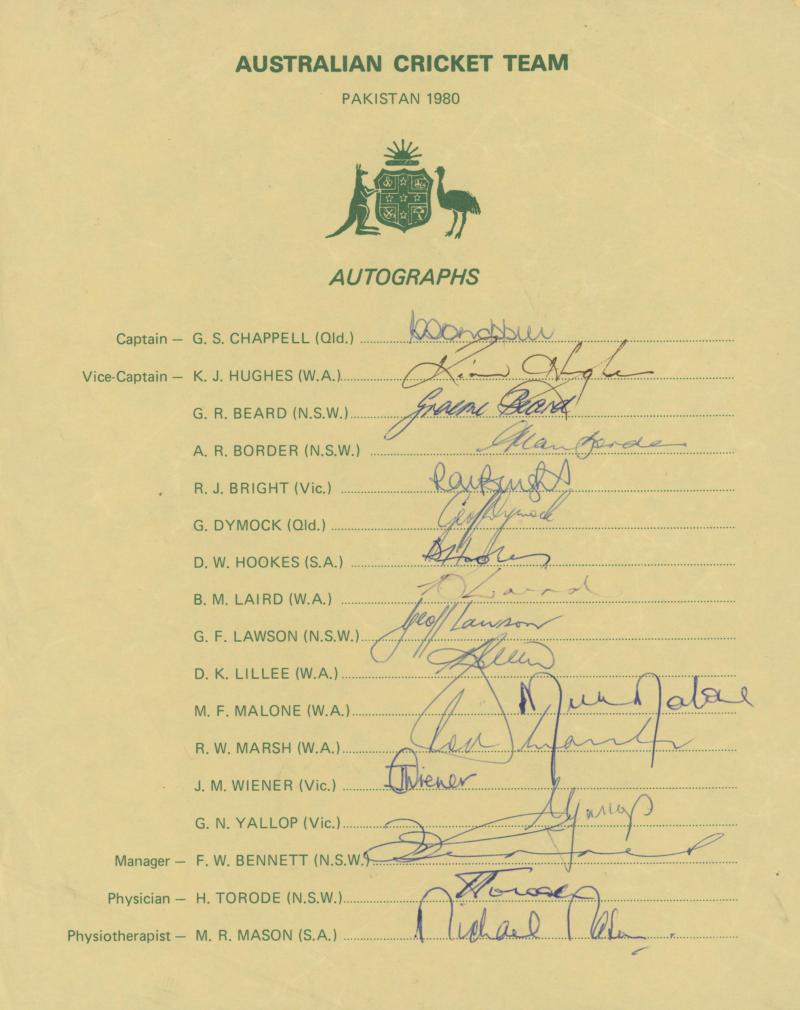 AUSTRALIAN CRICKET TEAM
PAKISTAN 1980
AUTOGRAPHS
Captain — G. S. CHAPPELL (Qld.)
Vice-Captain — K. J. HUGHES (W.A.) Kim Hughes
G. R. BEARD (N.S.W.) Graeme Beard
A. R. BORDER (N.S.W.) Allan Border
R. J. BRIGHT (Vic.) Ray Bright
G. DYMOCK (Qld.) Geoff Dymock
D. W. HOOKES (S.A.) D Hookes
B. M. LAIRD (W.A.) B Laird
G. F. LAWSON (N.S.W.) Geoff Lawson
D. K. LILLEE (W.A.)
M. F. MALONE (W.A.) Mick Malone
R. W. MARSH (W.A.) Rod Marsh
J. M. WIENER (Vic.) J Wiener
G. N. YALLOP (Vic.) G Yallop
Manager — F. W. BENNETT (N.S.W.)
Physician — H. TORODE (N.S.W.) H Torode
Physiotherapist — M. R. MASON (S.A.) Michael Mason